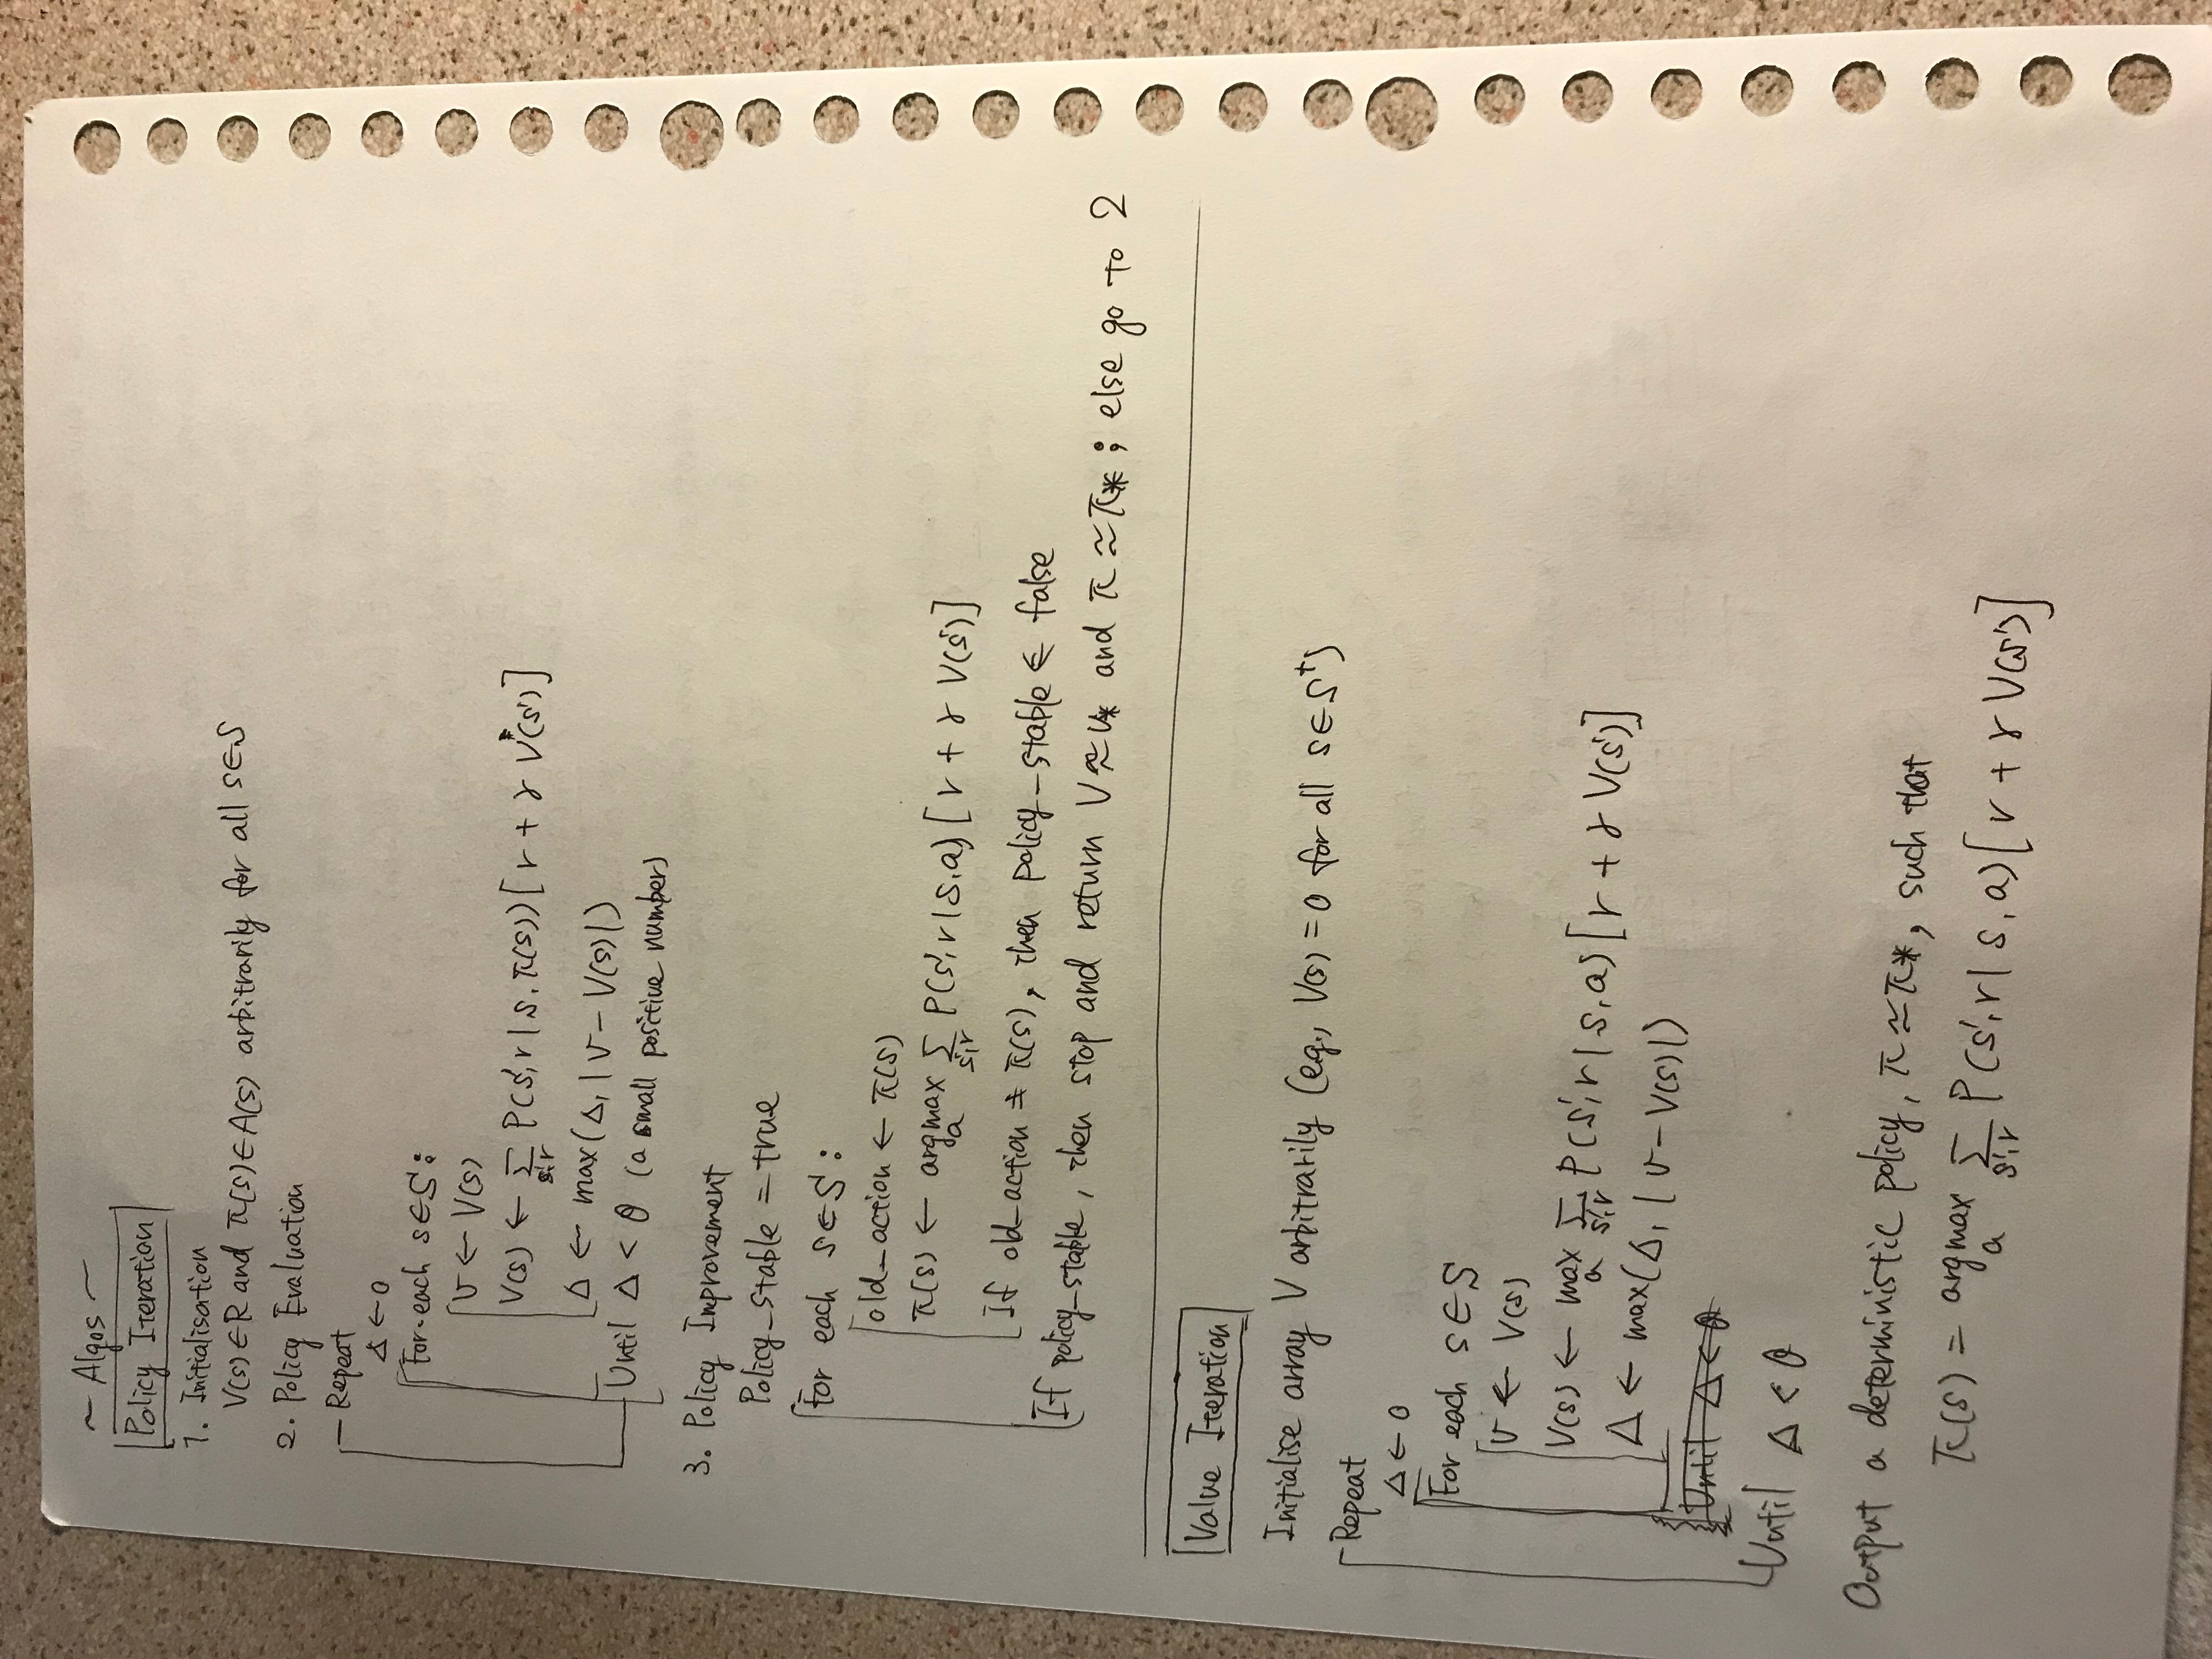 ~ Algos ~
Policy Iteration
1. Initialisation
V(s) ∈ R and π(s) ∈ A(s) arbitrarily for all s ∈ S
2. Policy Evaluation
Repeat
Δ ← 0
For each s ∈ S:
v ← V(s)
V(s) ← Σ_{s',r} P(s',r|s,π(s))[r + γ V(s')]
Δ ← max(Δ, |v - V(s)|)
Until Δ < θ (a small positive number)
3. Policy Improvement
Policy_stable = true
For each s ∈ S:
old_action ← π(s)
π(s) ← argmax_a Σ_{s',r} P(s',r|s,a)[r + γ V(s')]
If old_action ≠ π(s), then policy_stable ← false
If policy_stable, then stop and return V ≈ v* and π ≈ π*; else go to 2
Value Iteration
Initialise array V arbitrarily (e.g., V(s) = 0 for all s ∈ S⁺)
Repeat
Δ ← 0
For each s ∈ S
v ← V(s)
V(s) ← max_a Σ_{s',r} P(s',r|s,a)[r + γ V(s')]
Δ ← max(Δ, |v - V(s)|)
Until Δ < θ
Until Δ < θ
Output a deterministic policy, π ≈ π*, such that
π(s) = argmax_a Σ_{s',r} P(s',r|s,a)[r + γ V(s')]